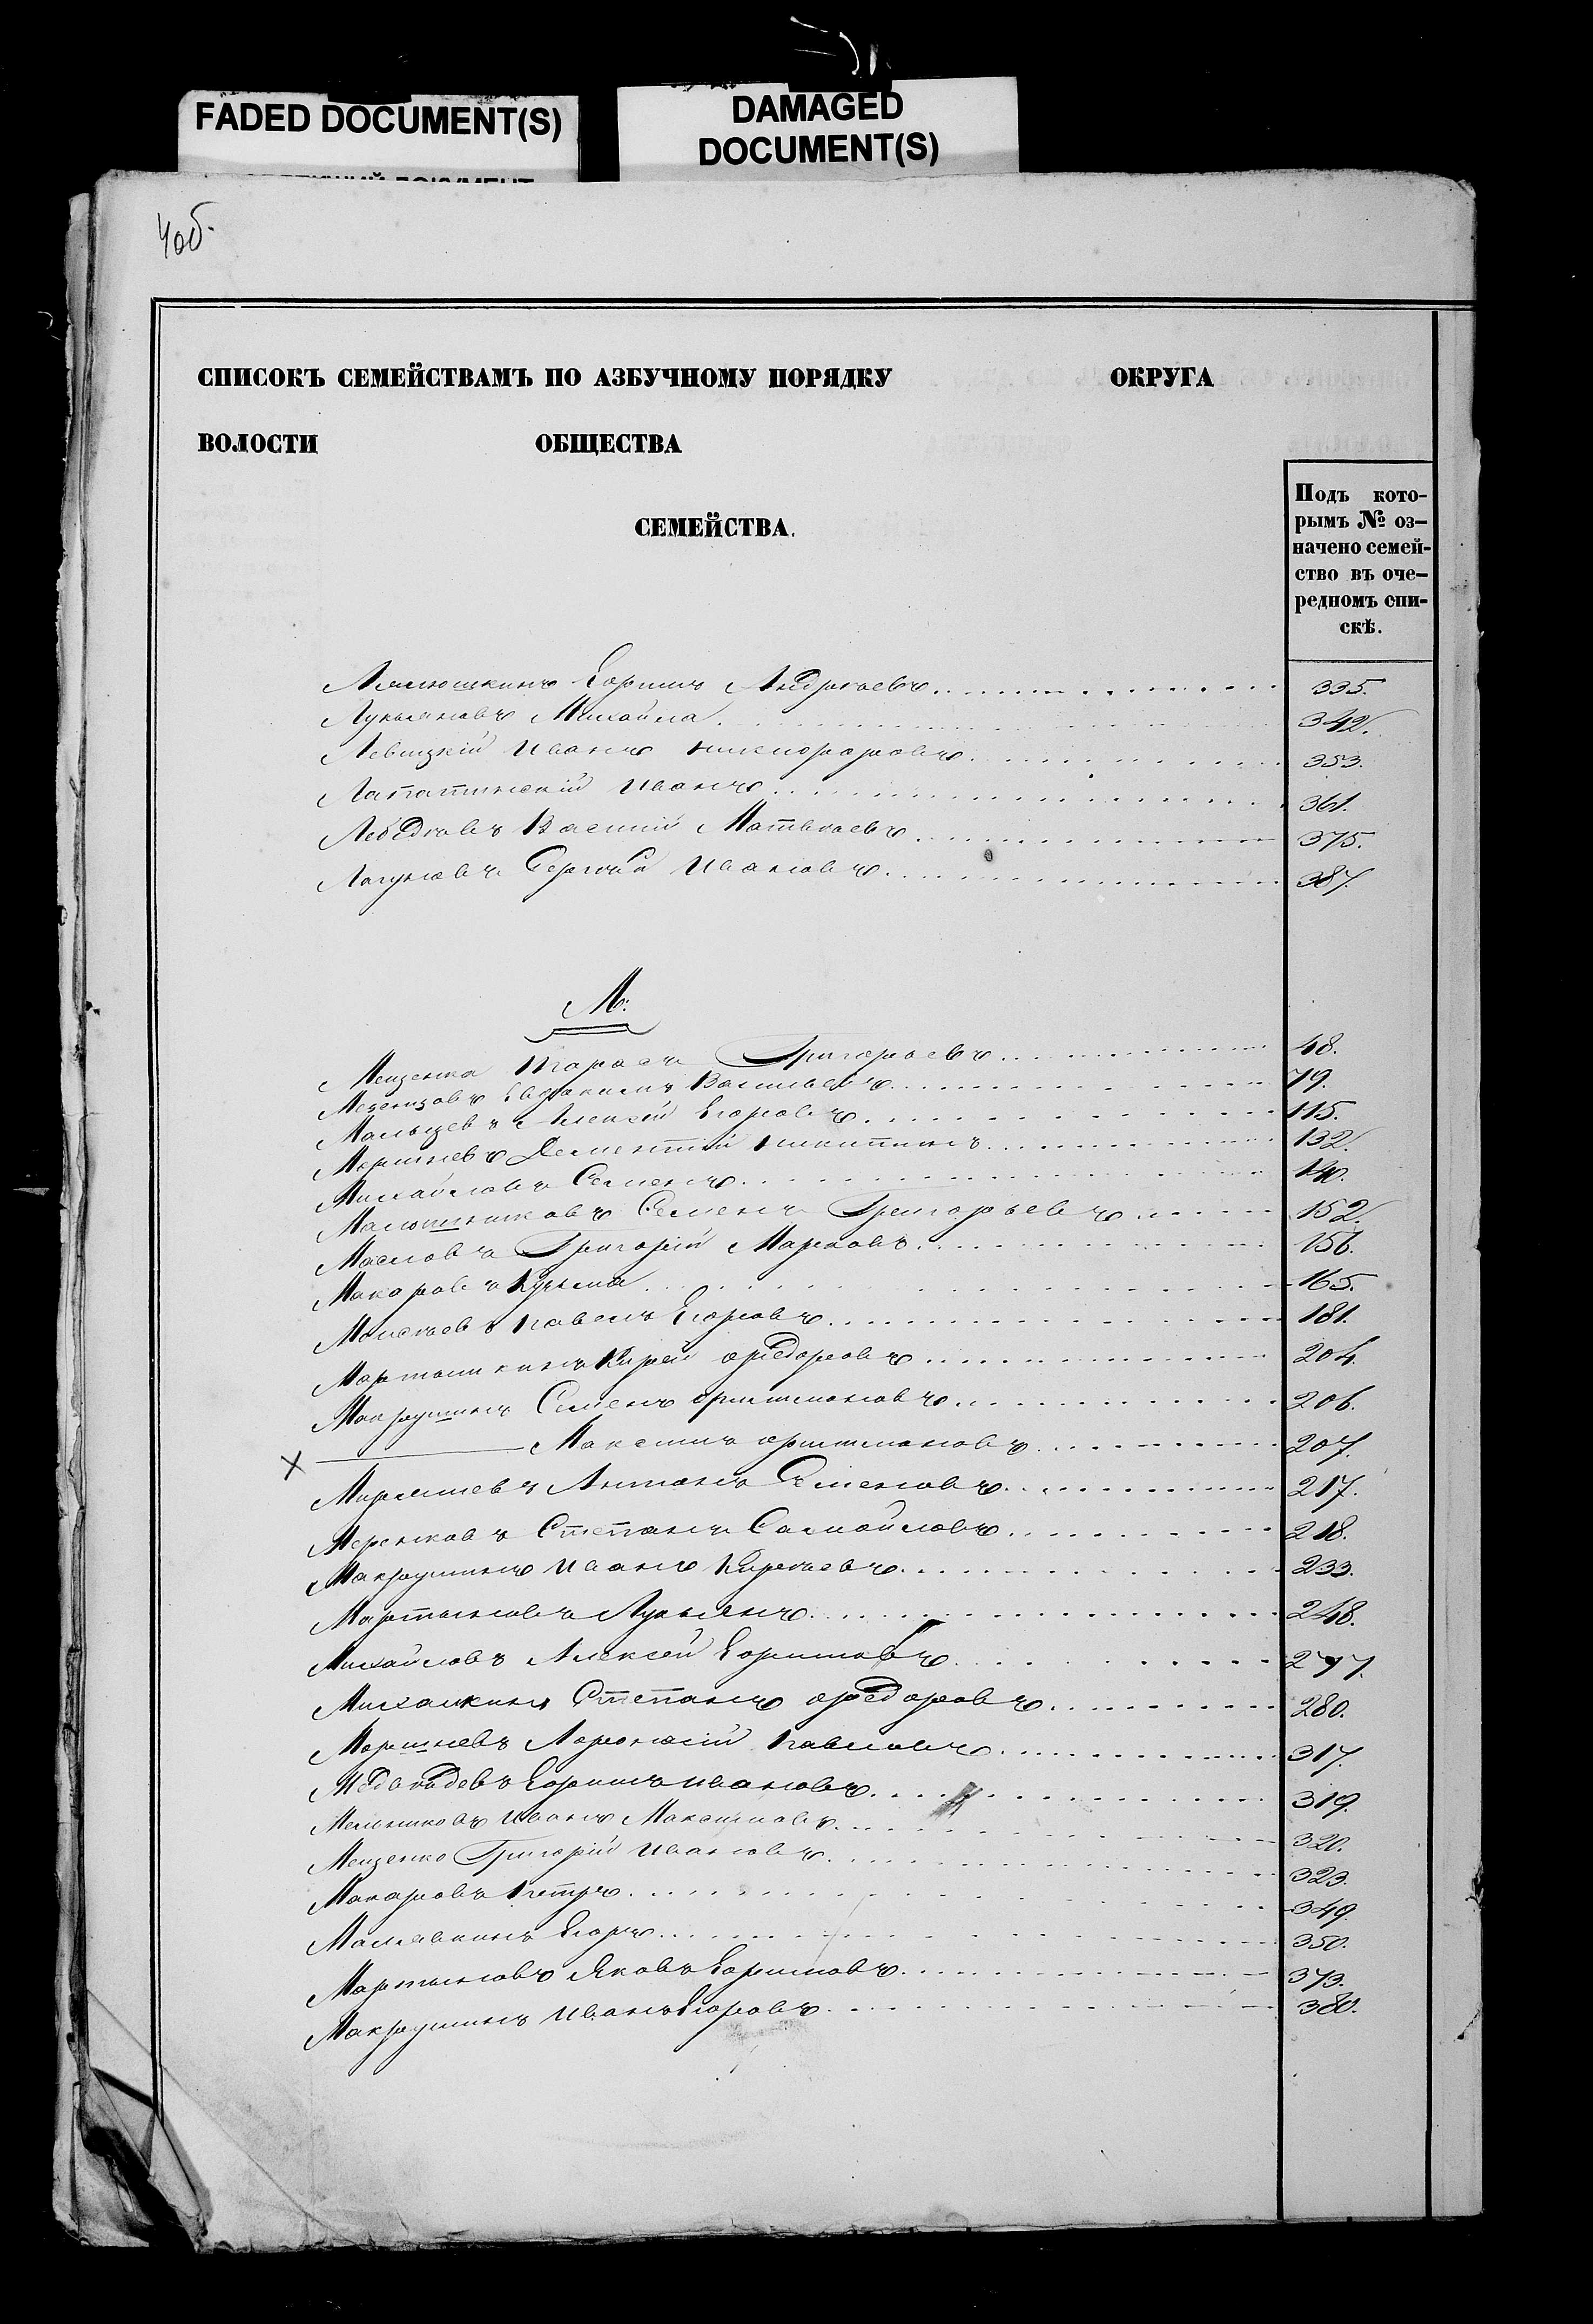 FADED DOCUMENT(S)
DAMAGED
DOCUMENT(S)
4об.
СПИСОКЪ СЕМЕЙСТВАМЪ ПО АЗБУЧНОМУ ПОРЯДКУ ОКРУГА
ВОЛОСТИ ОБЩЕСТВА
СЕМЕЙСТВА.
Подъ кото-
рымъ № оз-
начено семей-
ство въ оче-
редномъ спи-
скѣ.
Ефимъ Андреевъ 335.
Лукьяновъ Михайла 342.
Левицкій Иванъ Никифоровъ 353.
Лапатинскій Иванъ 361.
Василій Матвѣевъ 375.
Лагуновъ Сергѣй Ивановъ 387.
М.
Мещенка Тарасъ Григорьевъ 48.
Мезенцовъ Евдокимъ Васильевъ 79.
Мальцевъ Алексѣй Егоровъ 115.
Моршневъ Дементій Никитинъ 132.
Михайловъ Семенъ 140.
Семенъ Григорьевъ 152.
Масловъ Григорій Марковъ 156.
Макаровъ Кузьма 165.
Мокѣевъ Павелъ Егоровъ 181.
Мартышкинъ Кирей Федоровъ 204.
Макрушинъ Семенъ Филимоновъ 206.
Х ——— Максимъ Филимоновъ 207.
Антонъ Семеновъ 217.
Меренковъ Степанъ Самойловъ 218.
Макрушинъ Иванъ Кирѣевъ 233.
Мартыновъ Лукьянъ 248.
Михайловъ Алексѣй Ефимовъ 277.
Михалкинъ Степанъ Федоровъ 280.
Моршневъ Афонасій Павловъ 317.
Медвѣдевъ Ефимъ Ивановъ 319.
Мельниковъ Иванъ Максимовъ 320.
Мещенко Григорій Ивановъ 323.
Макаровъ Петръ 349.
Малявкинъ Егоръ 350.
Мартыновъ Яковъ Ефимовъ 373.
Макрушинъ Иванъ Егоровъ 380.